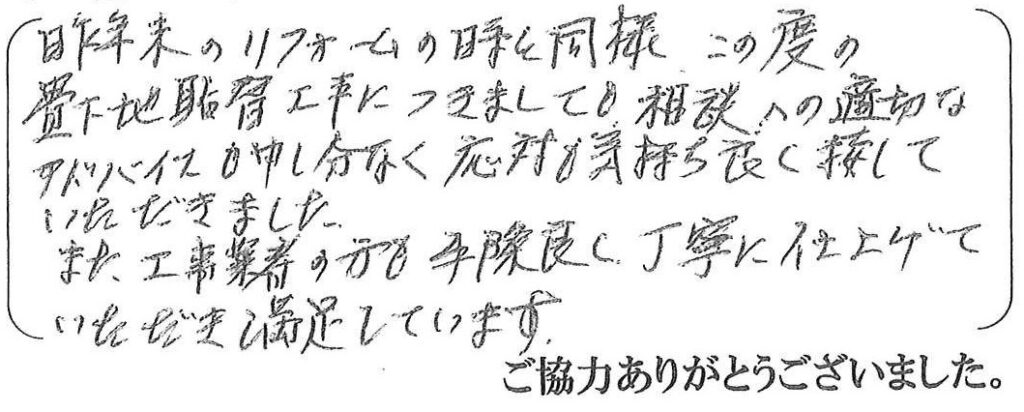 昨年末のリフォームの時と同様 この度の
畳下地貼替工事につきましても 相談への適切な
アドバイスも申し分なく 応対も気持ち良く接して
いただきました。
また、工事業者の方も 手際良く、丁寧に仕上げて
いただき満足しています。
ご協力ありがとうございました。